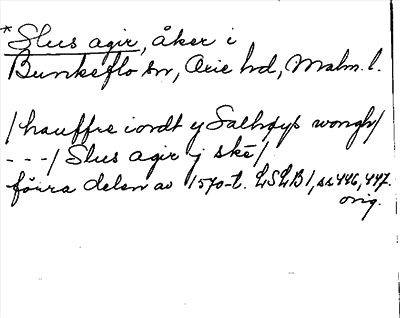 * Slus agir, åker i
Bunkeflo sn, Oxie hd, Malm. l.
/hauffre iordt y Salhøys wongh/
- - -/ Slus agir y skē/
förra delen av 1570-t. LSLB 1, ss 446, 447.
orig.